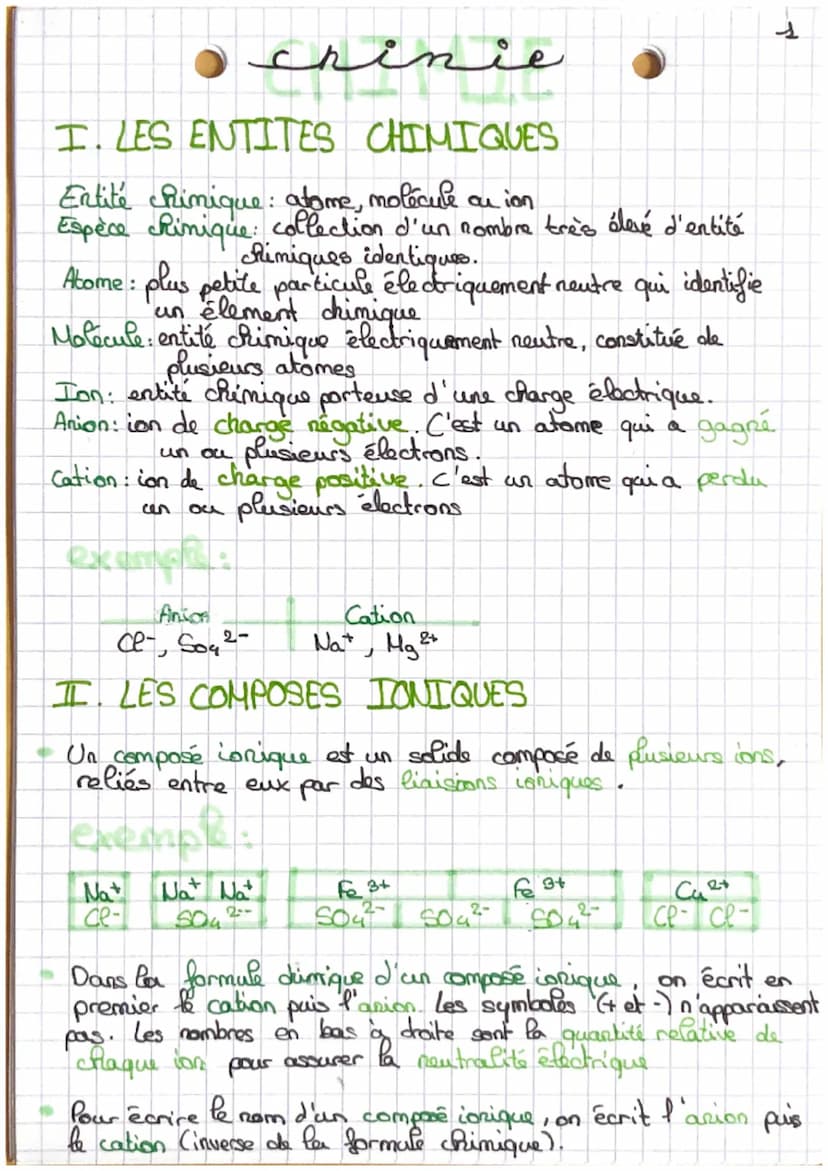 1
CHIMIE
chimie
I. LES ENTITES CHIMIQUES
Entité chimique : atome, molécule ou ion
Espèce chimique : collection d'un nombre très élevé d'entité
chimiques identiques.
Atome : plus petite particule électriquement neutre qui identifie
un élement chimique
Molécule : entité chimique électriquement neutre, constitué de
plusieurs atomes
Ion : entité chimique porteuse d'une charge électrique.
Anion : ion de charge négative. C'est un atome qui a gagné
un ou plusieurs électrons.
Cation : ion de charge positive. C'est un atome qui a perdu
un ou plusieurs électrons
exemple :
Anion Cation
Cl⁻, SO₄²⁻ Na⁺, Mg²⁺
II. LES COMPOSES IONIQUES
• Un composé ionique est un solide composé de plusieurs ions,
reliés entre eux par des liaisions ioniques.
exemple :
Na⁺ Na⁺ Na⁺ Fe³⁺ Fe³⁺ Cu²⁺
Cl⁻ SO₄²⁻ SO₄²⁻ SO₄²⁻ SO₄²⁻ Cl⁻ Cl⁻
• Dans la formule chimique d'un composé ionique, on écrit en
premier le cation puis l'anion. Les symboles (+ et -) n'apparaissent
pas. Les nombres en bas à droite sont la quantité relative de
chaque ion pour assurer la neutralité électrique
• Pour écrire le nom d'un composé ionique, on écrit l'anion puis
le cation (inverse de la formule chimique).